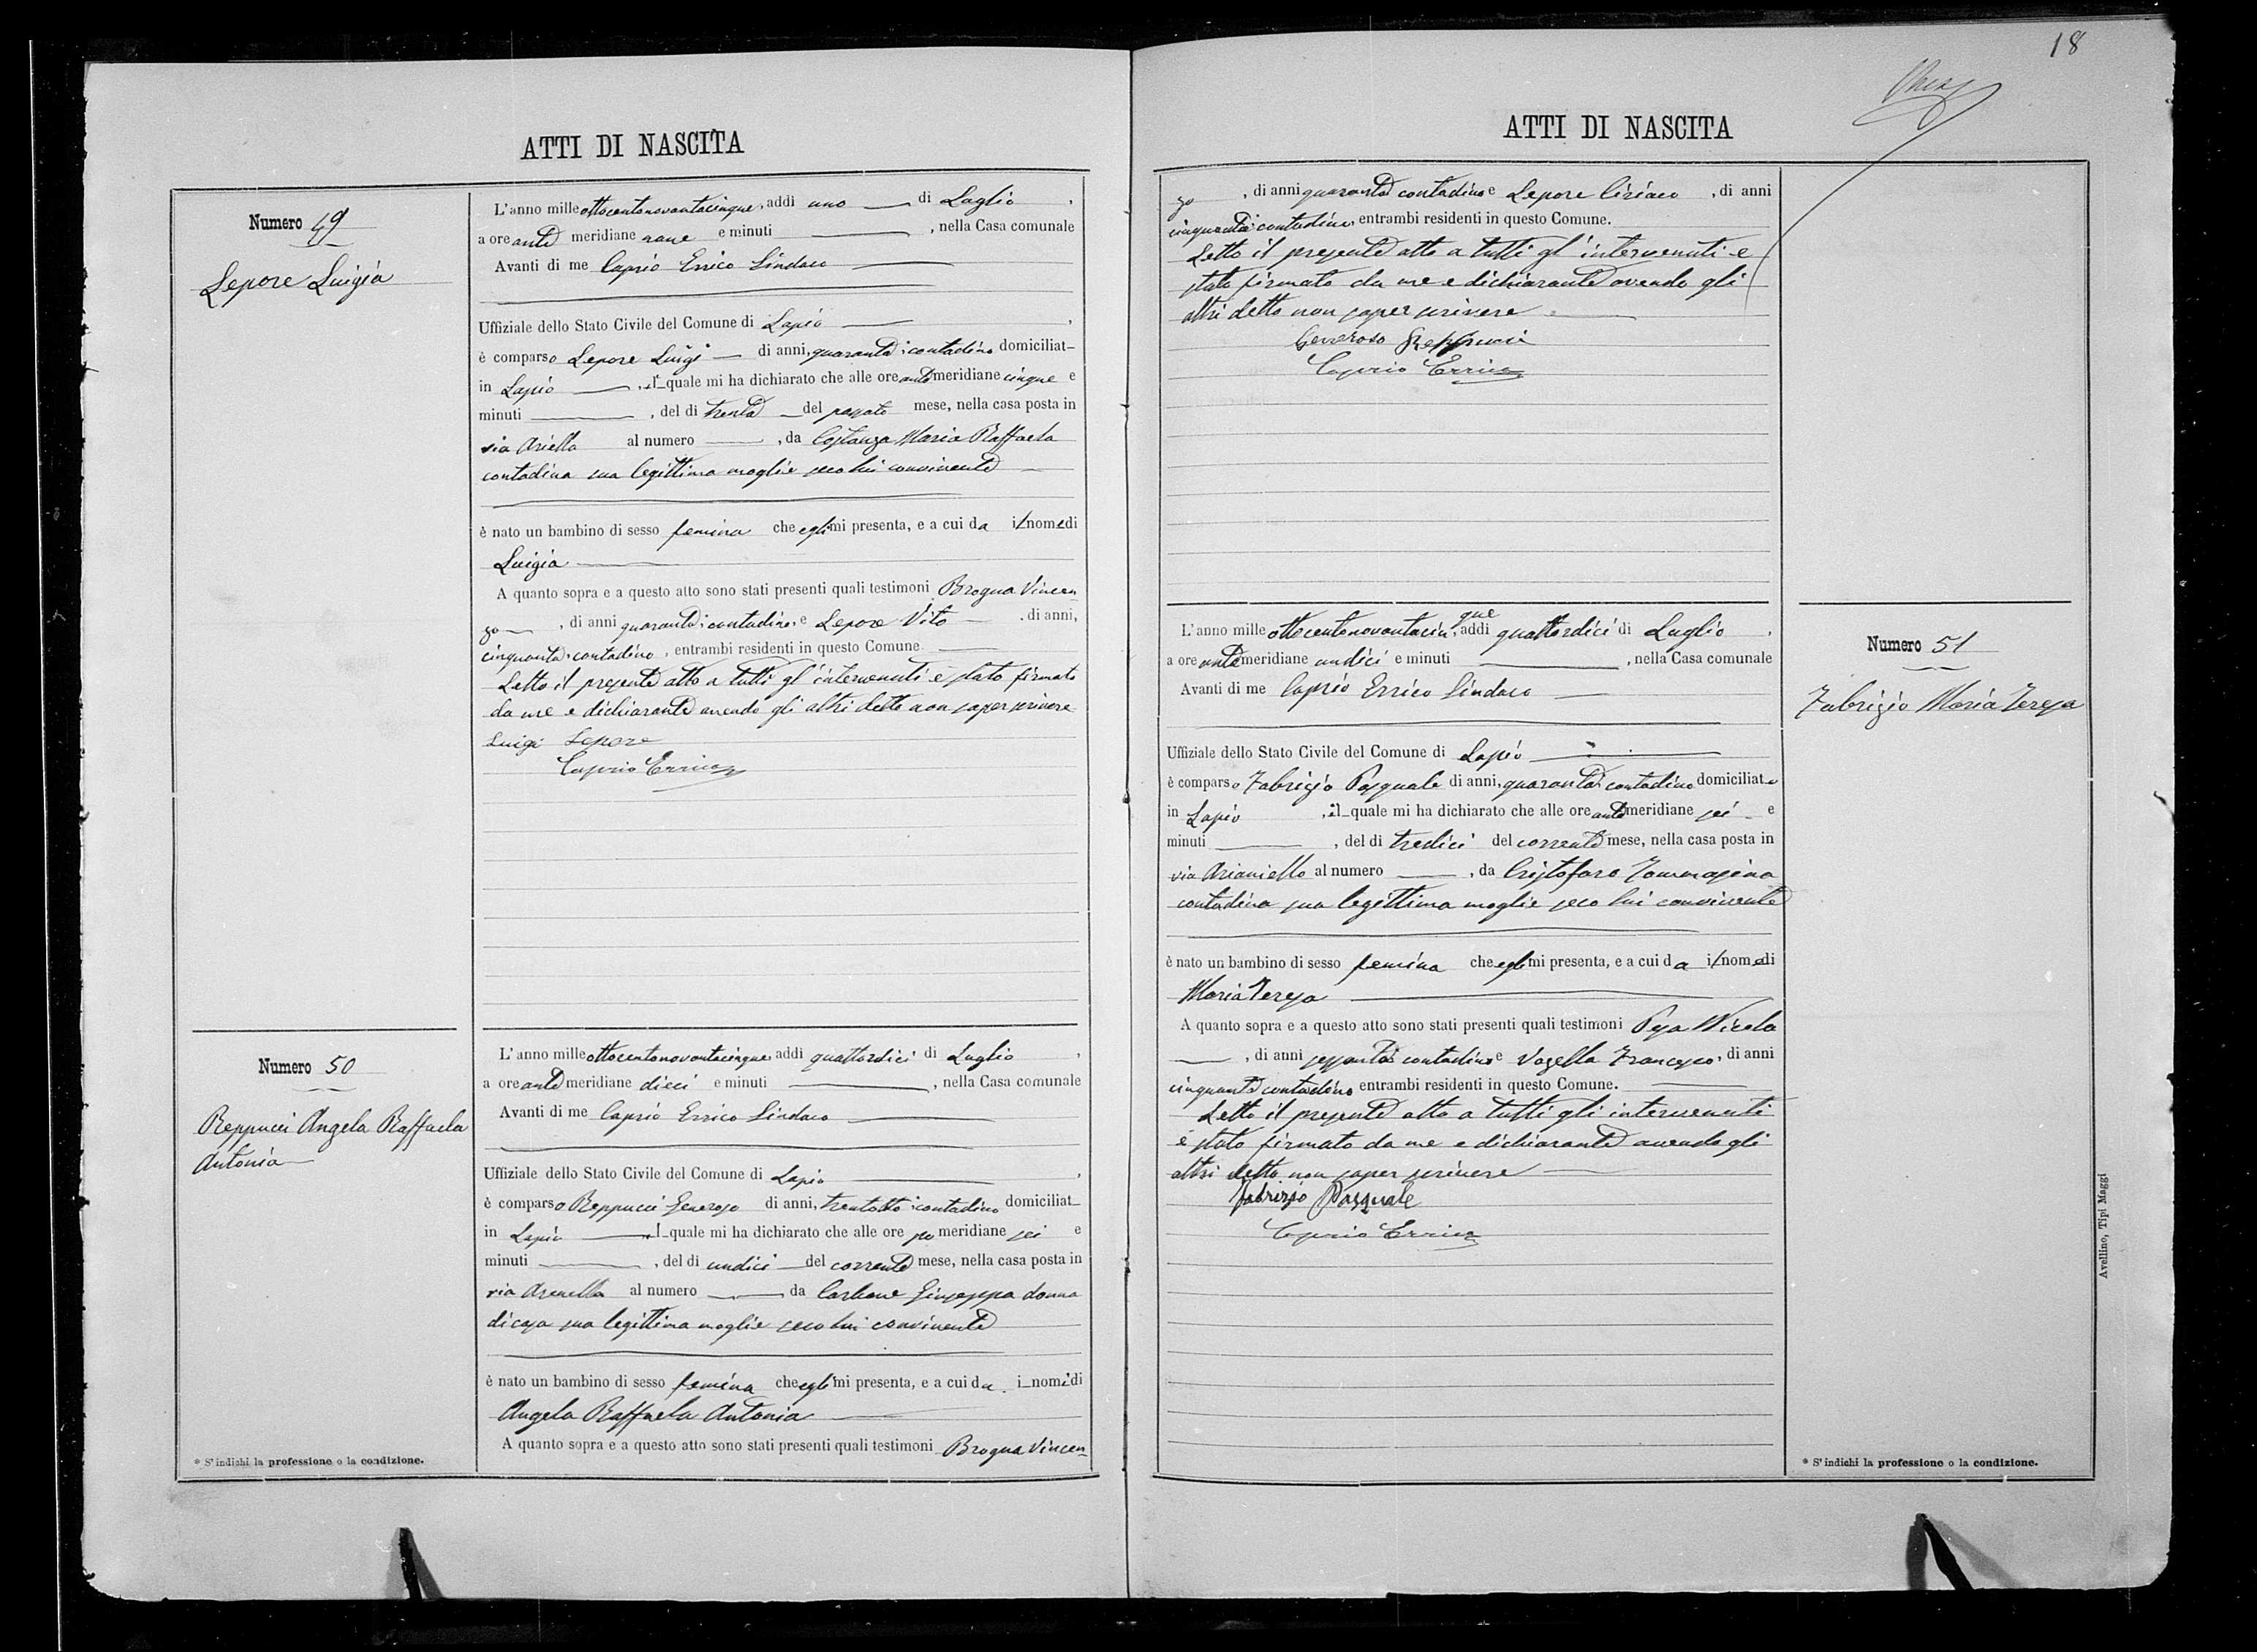 18
ATTI DI NASCITA
Numero 49
Lepore Luigia
L'anno mille ottocentonovantacinque, addì uno di Luglio,
a ore ante meridiane nove e minuti , nella Casa comunale
Avanti di me Caprio Errico Sindaco
Uffiziale dello Stato Civile del Comune di Lapio,
è comparso Lepore Luigi di anni, quaranta contadino domiciliat
in Lapio, il quale mi ha dichiarato che alle ore ante meridiane cinque e
minuti , del dì trenta del passato mese, nella casa posta in
via Ariella al numero , da Costanza Maria Raffaela
contadina sua legittima moglie seco lui convivente
è nato un bambino di sesso femina che egli mi presenta, e a cui da il nome di
Luigia
A quanto sopra e a questo atto sono stati presenti quali testimoni Brogna Vincen
zo, di anni quaranta contadino e Lepore Vito . di anni,
cinquanta, contadino, entrambi residenti in questo Comune.
Letto il presente atto a tutti gl'intervenuti è stato firmato
da me e dichiarante avendo gli altri detto non saper scrivere
Luigi Lepore
Caprio Errico
Numero 50
Reppucci Angela Raffaela
Antonia
L'anno mille ottocentonovantacinque addì quattordici di Luglio,
a ore ante meridiane dieci e minuti , nella Casa comunale
Avanti di me Caprio Errico Sindaco
Uffiziale dello Stato Civile del Comune di Lapio,
è comparso Reppucci Generoso di anni, trentotto contadino domiciliat
in Lapio il quale mi ha dichiarato che alle ore po meridiane sei e
minuti , del dì undici del corrente mese, nella casa posta in
via Arenella al numero da Carbone Giuseppa donna
di casa sua legittima moglie seco lui convivente
è nato un bambino di sesso femina che egli mi presenta, e a cui da i nomi di
Angela Raffaela Antonia
A quanto sopra e a questo atto sono stati presenti quali testimoni Brogna Vincen
* S'indichi la professione o la condizione.
ATTI DI NASCITA
zo, di anni quaranta contadino e Lepore Ciriaco, di anni
cinquanta contadino, entrambi residenti in questo Comune.
Letto il presente atto a tutti gl'intervenuti è
stato firmato da me e dichiarante avendo gli
altri detto non saper scrivere
Generoso Reppucci
Caprio Errico
Numero 51
Fabrizio Maria Teresa
L'anno mille ottocentonovantacinque, addì quattordici di Luglio,
a ore ante meridiane undici e minuti , nella Casa comunale
Avanti di me Caprio Errico Sindaco
Uffiziale dello Stato Civile del Comune di Lapio
è comparso Fabrizio Pasquale di anni, quaranta contadino domiciliato
in Lapio, il quale mi ha dichiarato che alle ore ante meridiane sei e
minuti , del dì tredici del corrente mese, nella casa posta in
via Arianiello al numero , da Cristofaro Tommasina
contadina sua legittima moglie seco lui convivente
è nato un bambino di sesso femina che egli mi presenta, e a cui da il nome di
Maria Teresa
A quanto sopra e a questo atto sono stati presenti quali testimoni Pesa Nicola
, di anni sessanta contadino e Vozella Francesco, di anni
cinquanta contadino entrambi residenti in questo Comune.
Letto il presente atto a tutti gli intervenuti
è stato firmato da me e dichiarante avendo gli
altri detto non saper scrivere
Fabrizio Pasquale
Caprio Errico
* S'indichi la professione o la condizione.
Avellino, Tipi Maggi